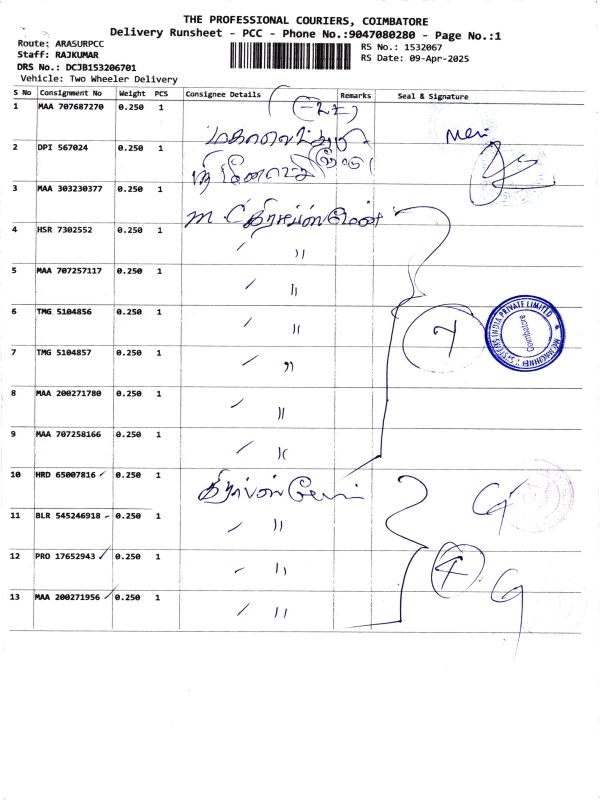 THE PROFESSIONAL COURIERS, COIMBATORE
Delivery Runsheet - PCC - Phone No.:9047080280 - Page No.:1
Route: ARASURPCC
Staff: RAJKUMAR
DRS No.: DCJB153206701
Vehicle: Two Wheeler Delivery
RS No.: 1532067
RS Date: 09-Apr-2025
S No Consignment No Weight PCS Consignee Details Remarks Seal & Signature
1 MAA 707687270 0.250 1
2 DPI 567024 0.250 1
3 MAA 303230377 0.250 1
4 HSR 7302552 0.250 1 〃
5 MAA 707257117 0.250 1 〃
6 TMG 5104856 0.250 1 〃
7 TMG 5104857 0.250 1 〃
8 MAA 200271780 0.250 1 〃
9 MAA 707258166 0.250 1 〃
7
INDIA PRIVATE LIMITED
Coimbatore
10 HRD 65007816 0.250 1
11 BLR 545246918 0.250 1 〃
12 PRO 17652943 0.250 1 〃
13 MAA 200271956 0.250 1 〃
4